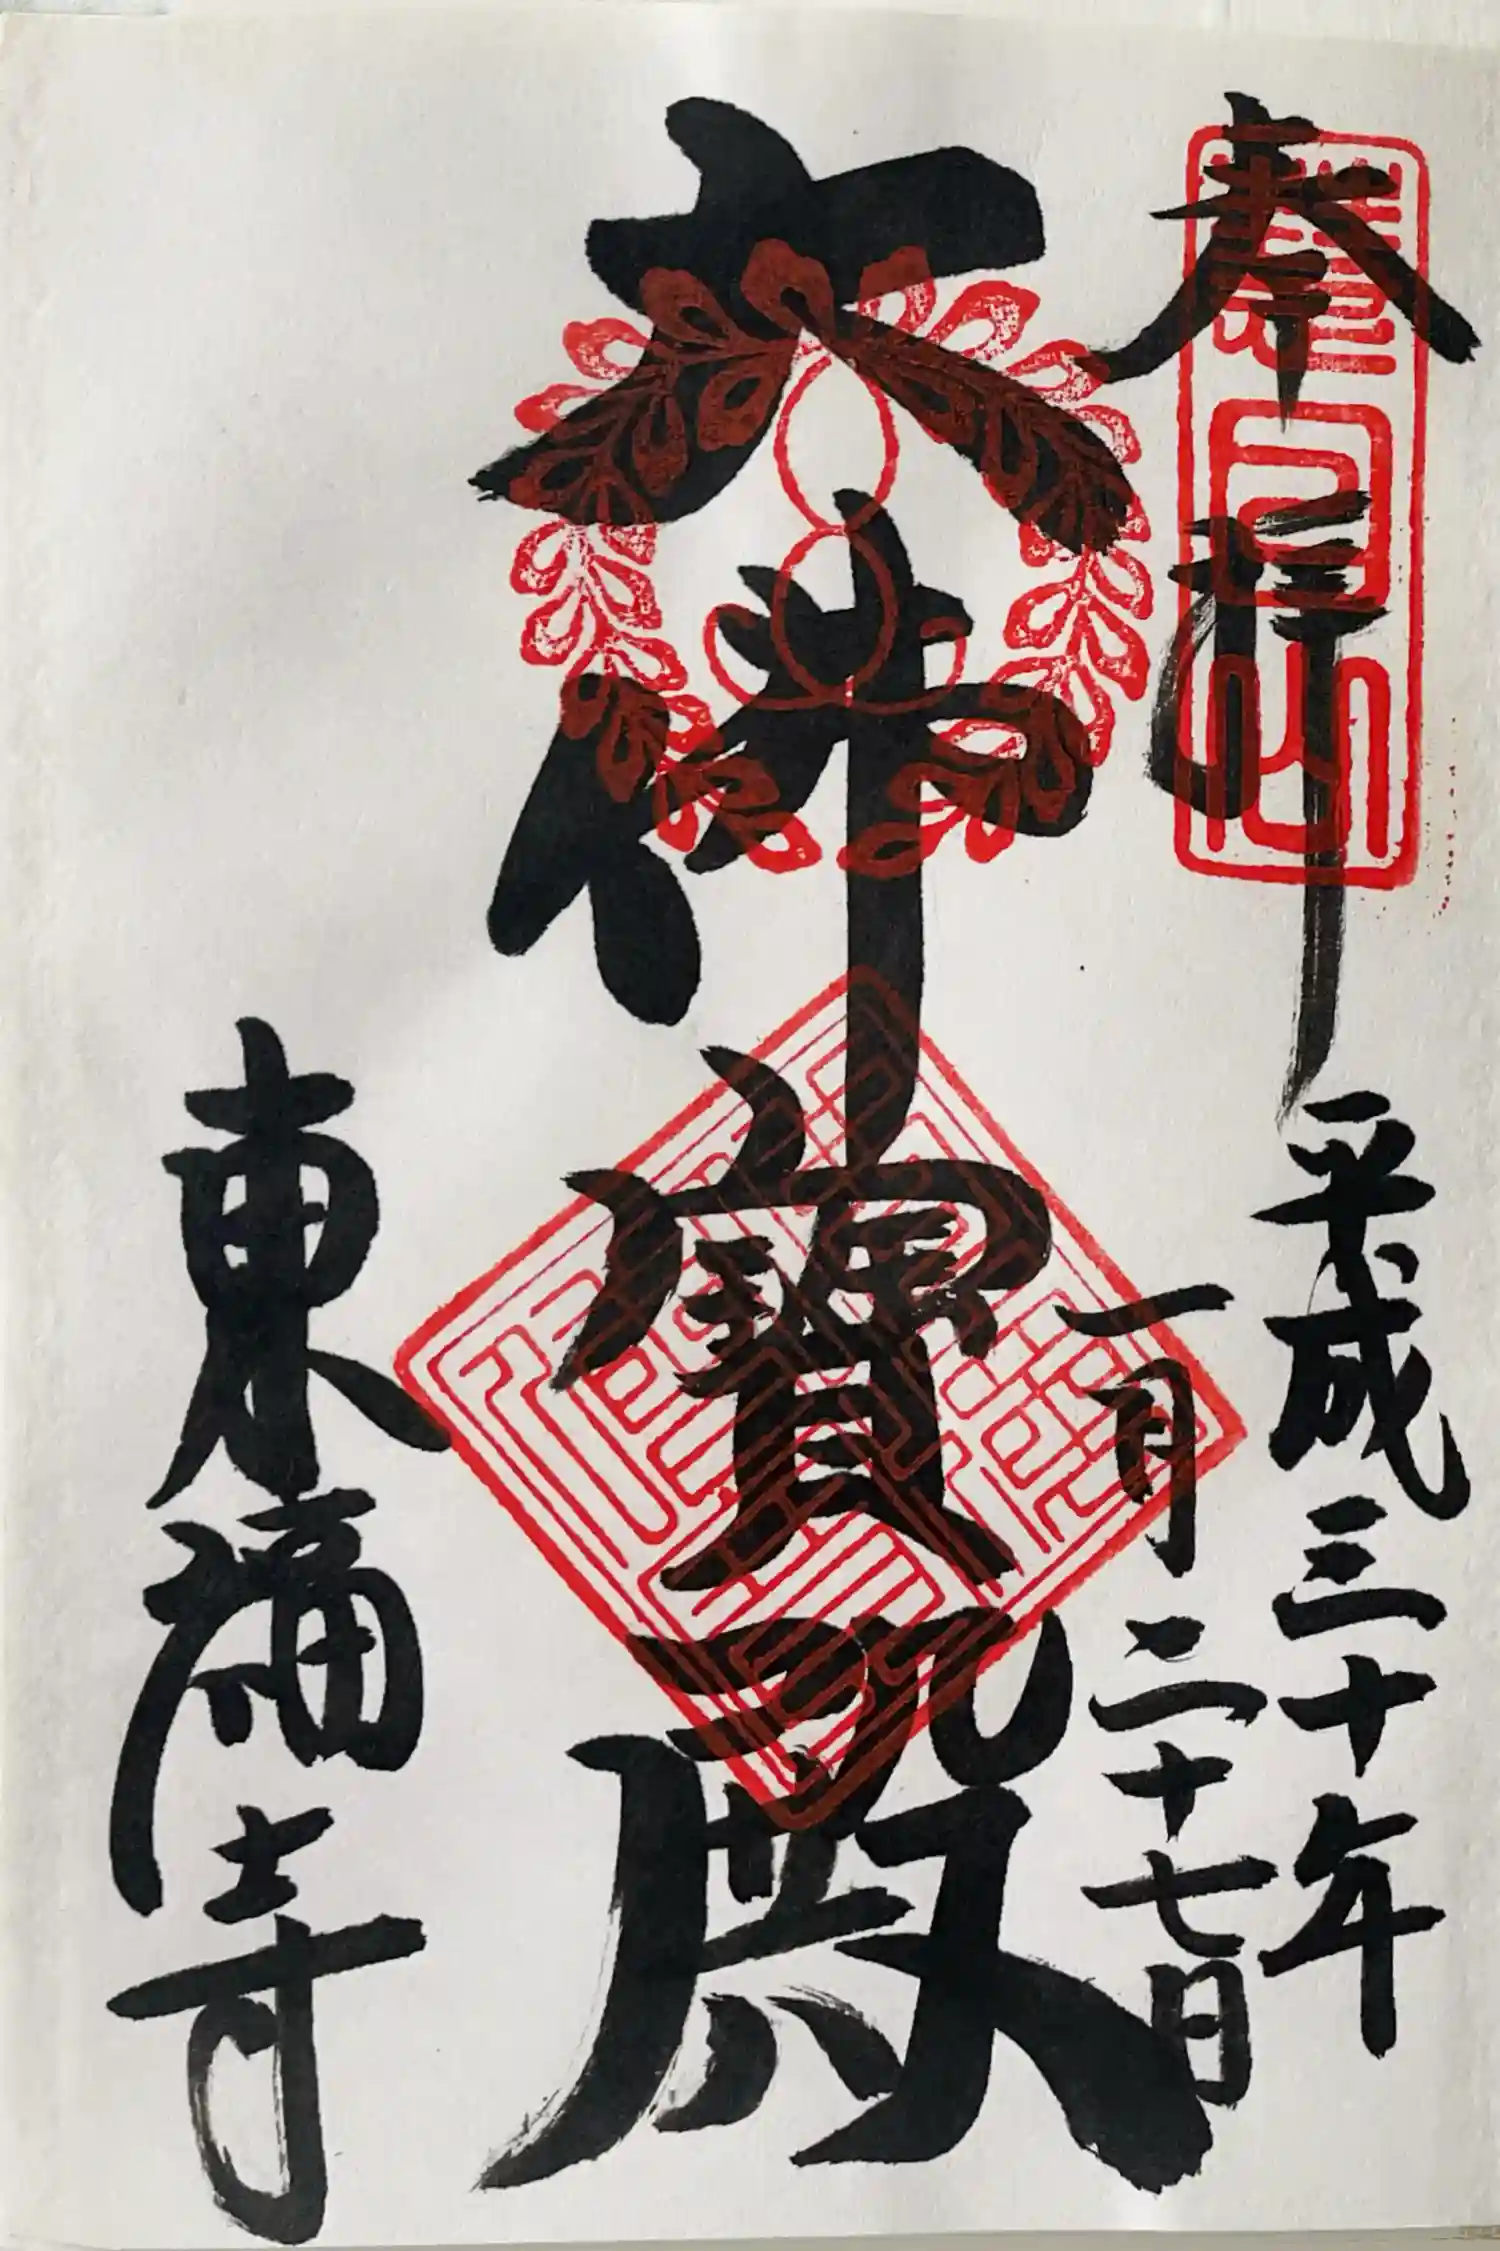 奉拝
平成三十年
一月二十七日
大佛寳殿
東福寺